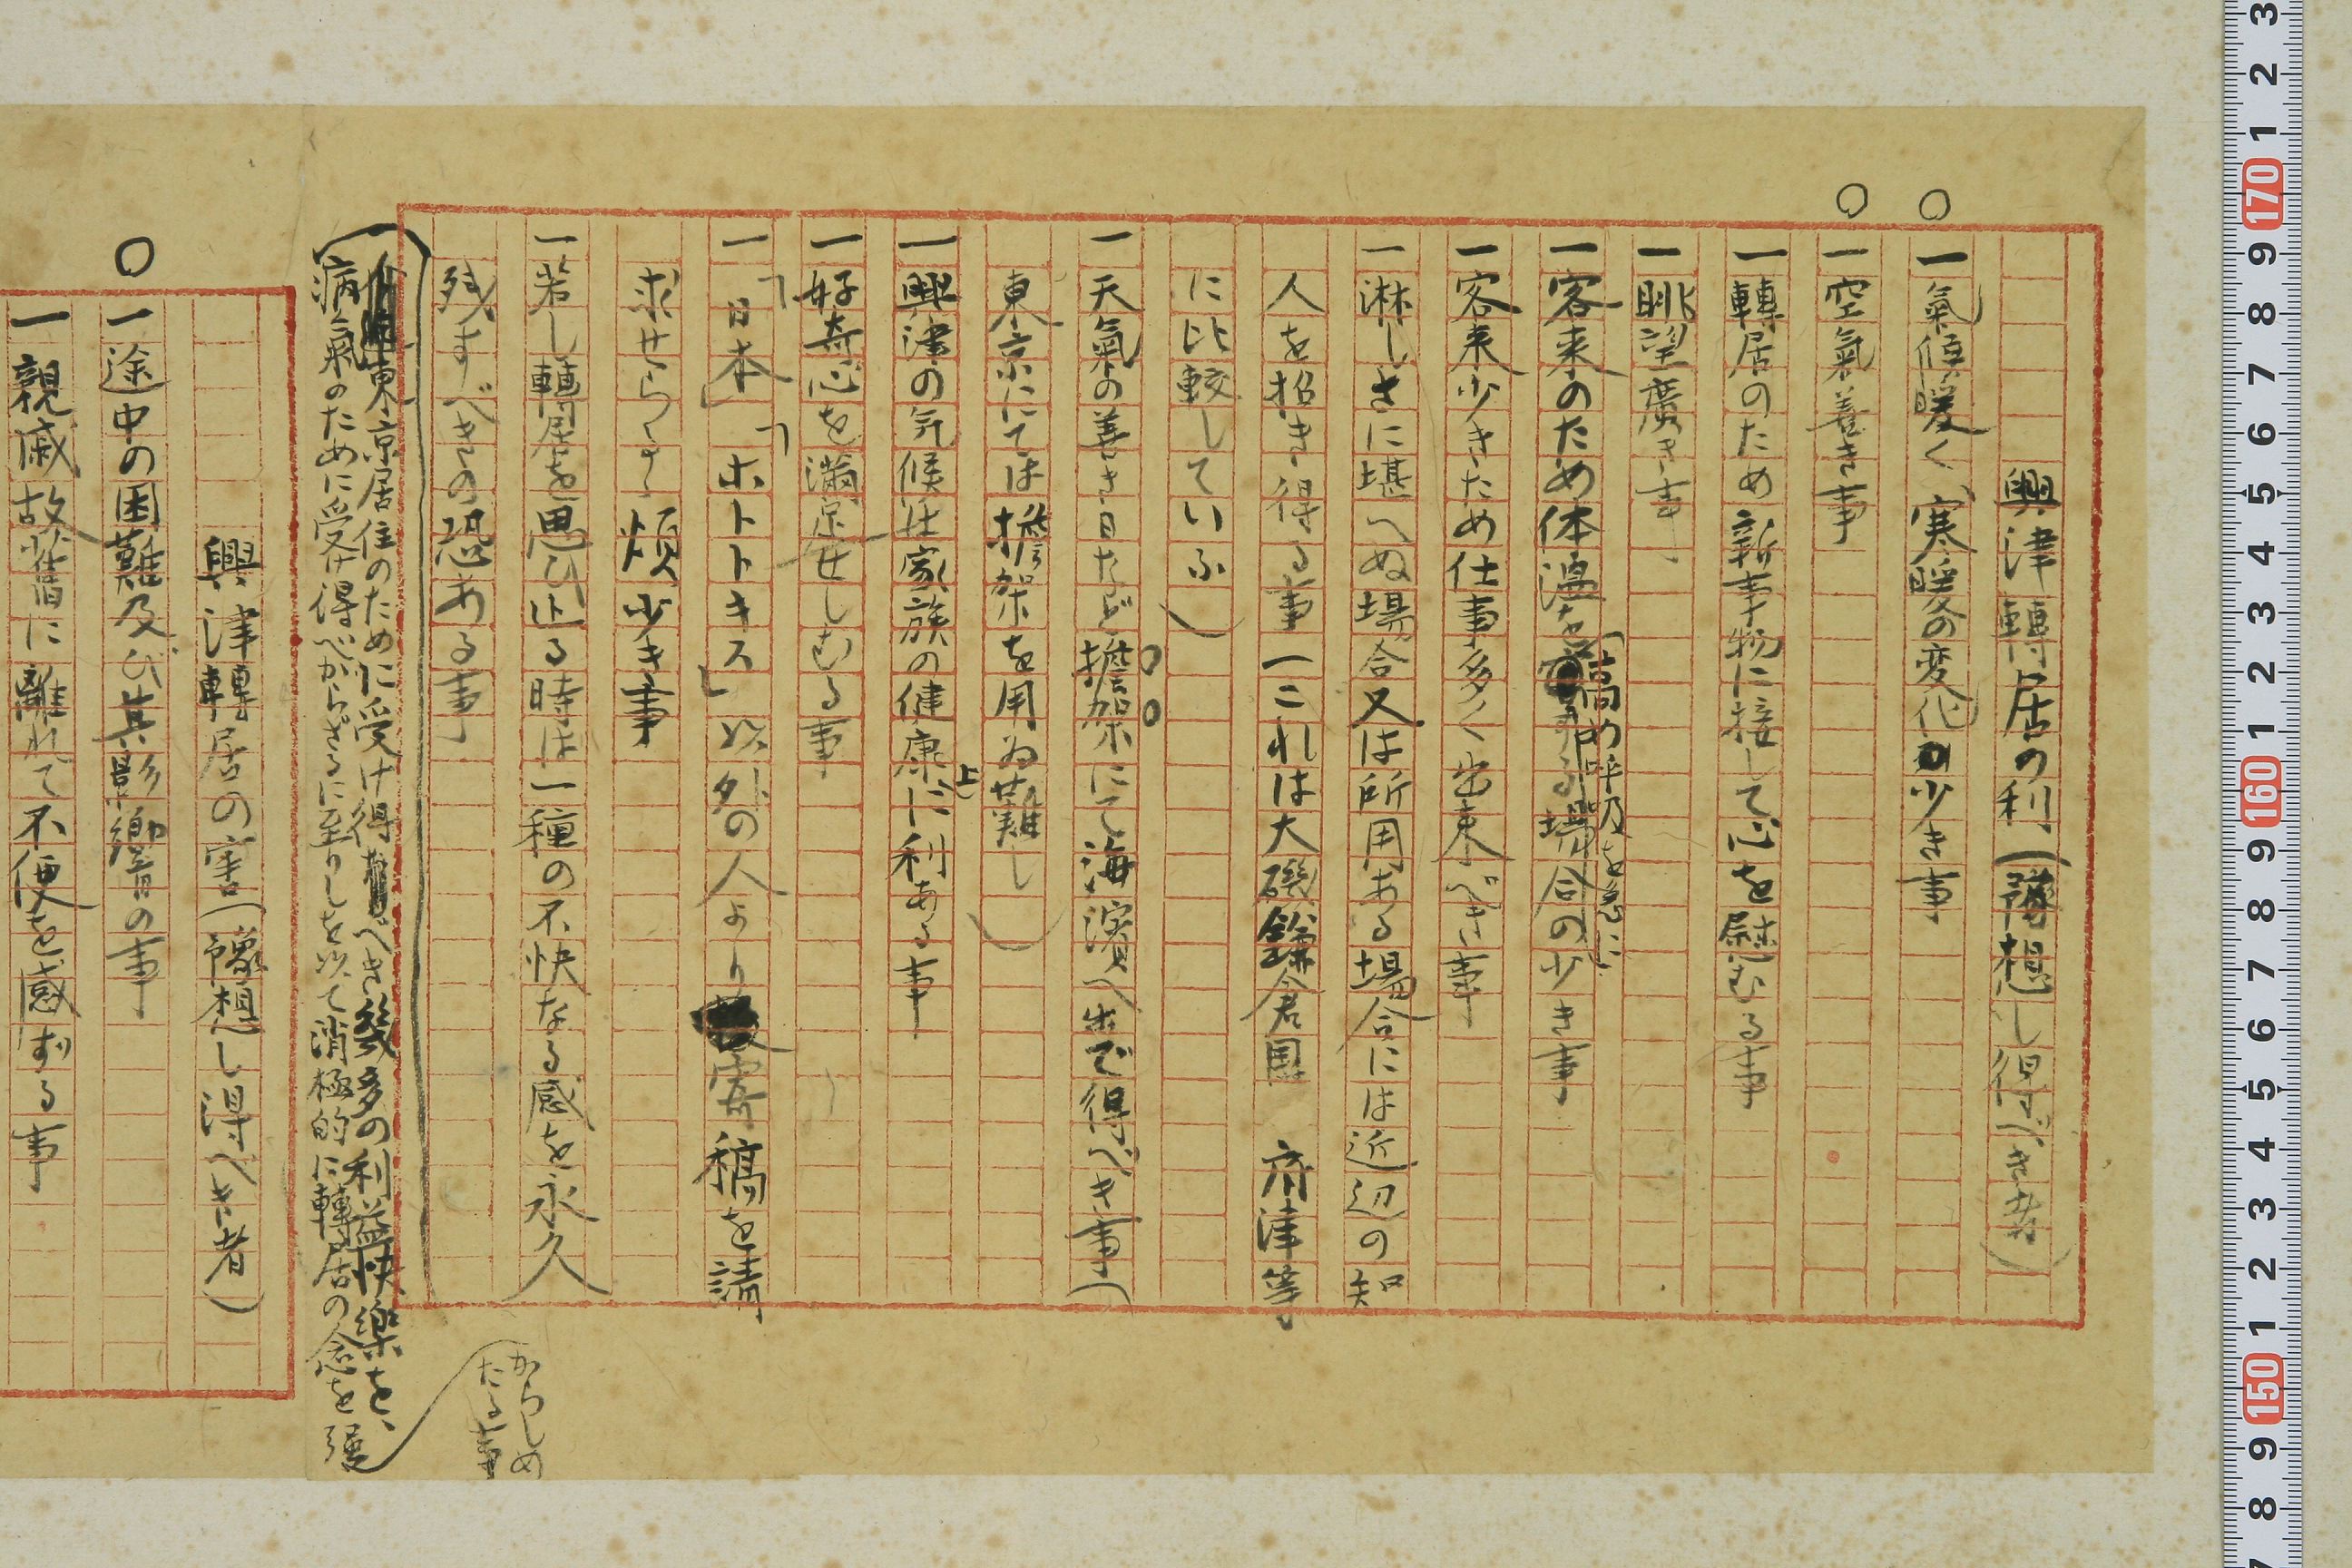 興津轉居の利(豫想し得べき者)
○一氣候暖く、寒暖の変化少き事
○一空氣善き事
一轉居のため新事物に接して心を慰むる事
一眺望廣き事
一客来のため体温を高め呼吸を急にする場合の少き事
一客来少きため仕事多く出来べき事
一淋しさに堪へぬ場合又は所用ある場合には近辺の知
人を招き得る事(これは大磯鎌倉国府津等
に比較していふ)
一天氣の善き日など擔架にて海濱へ出で得べき事(
東京にては擔架を用ゐ難し)
一興津の気候は家族の健康上に利ある事
一好奇心を滿足せしむる事
一「日本」「ホトトキス」以外の人より寄稿を請
求せらるゝ煩少き事
一若し轉居を思ひ止る時は一種の不快なる感を永久
残すべきの恐ある事
(東京居住のために受け得べき幾多の利益快樂を、
病氣のために受け得べからざるに至りしを以て消極的に轉居の念を強
からしめ
たる事
興津轉居の害(豫想し得べき者)
○一途中の困難及び其影響の事
一親戚故舊に離れて不便を感ずる事
3 2 1 170 9 8 7 6 5 4 3 2 1 160 9 8 7 6 5 4 3 2 1 150 9 8